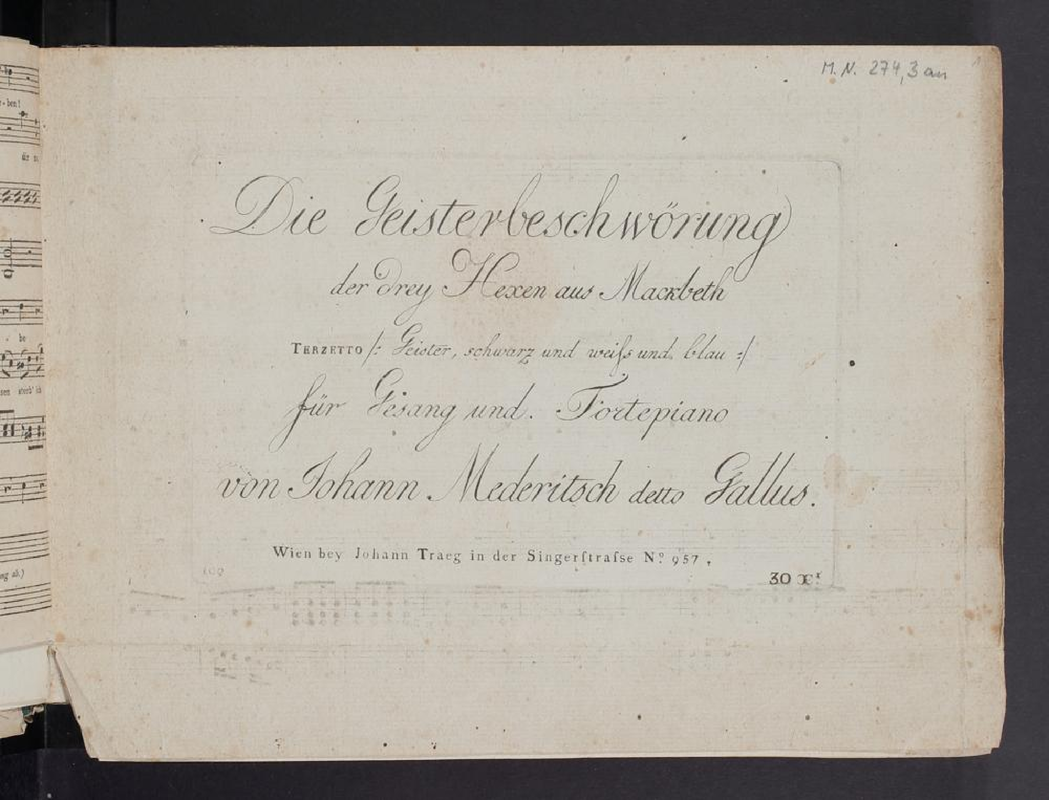 M. N. 274,3 an
Die Geisterbeschwörung
der drey Hexen aus Mackbeth
TERZETTO /: Geister, schwarz und weiſs und. blau :/
für Gesang und. Fortepiano
von Johann Mederitsch detto Gallus.
Wien bey Johann Traeg in der Singerſtraſse Nº 957.
109
30 xr